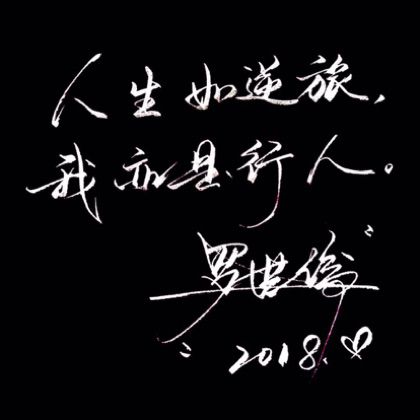 人生如逆旅，
我亦是行人。
罗世俊
2018.